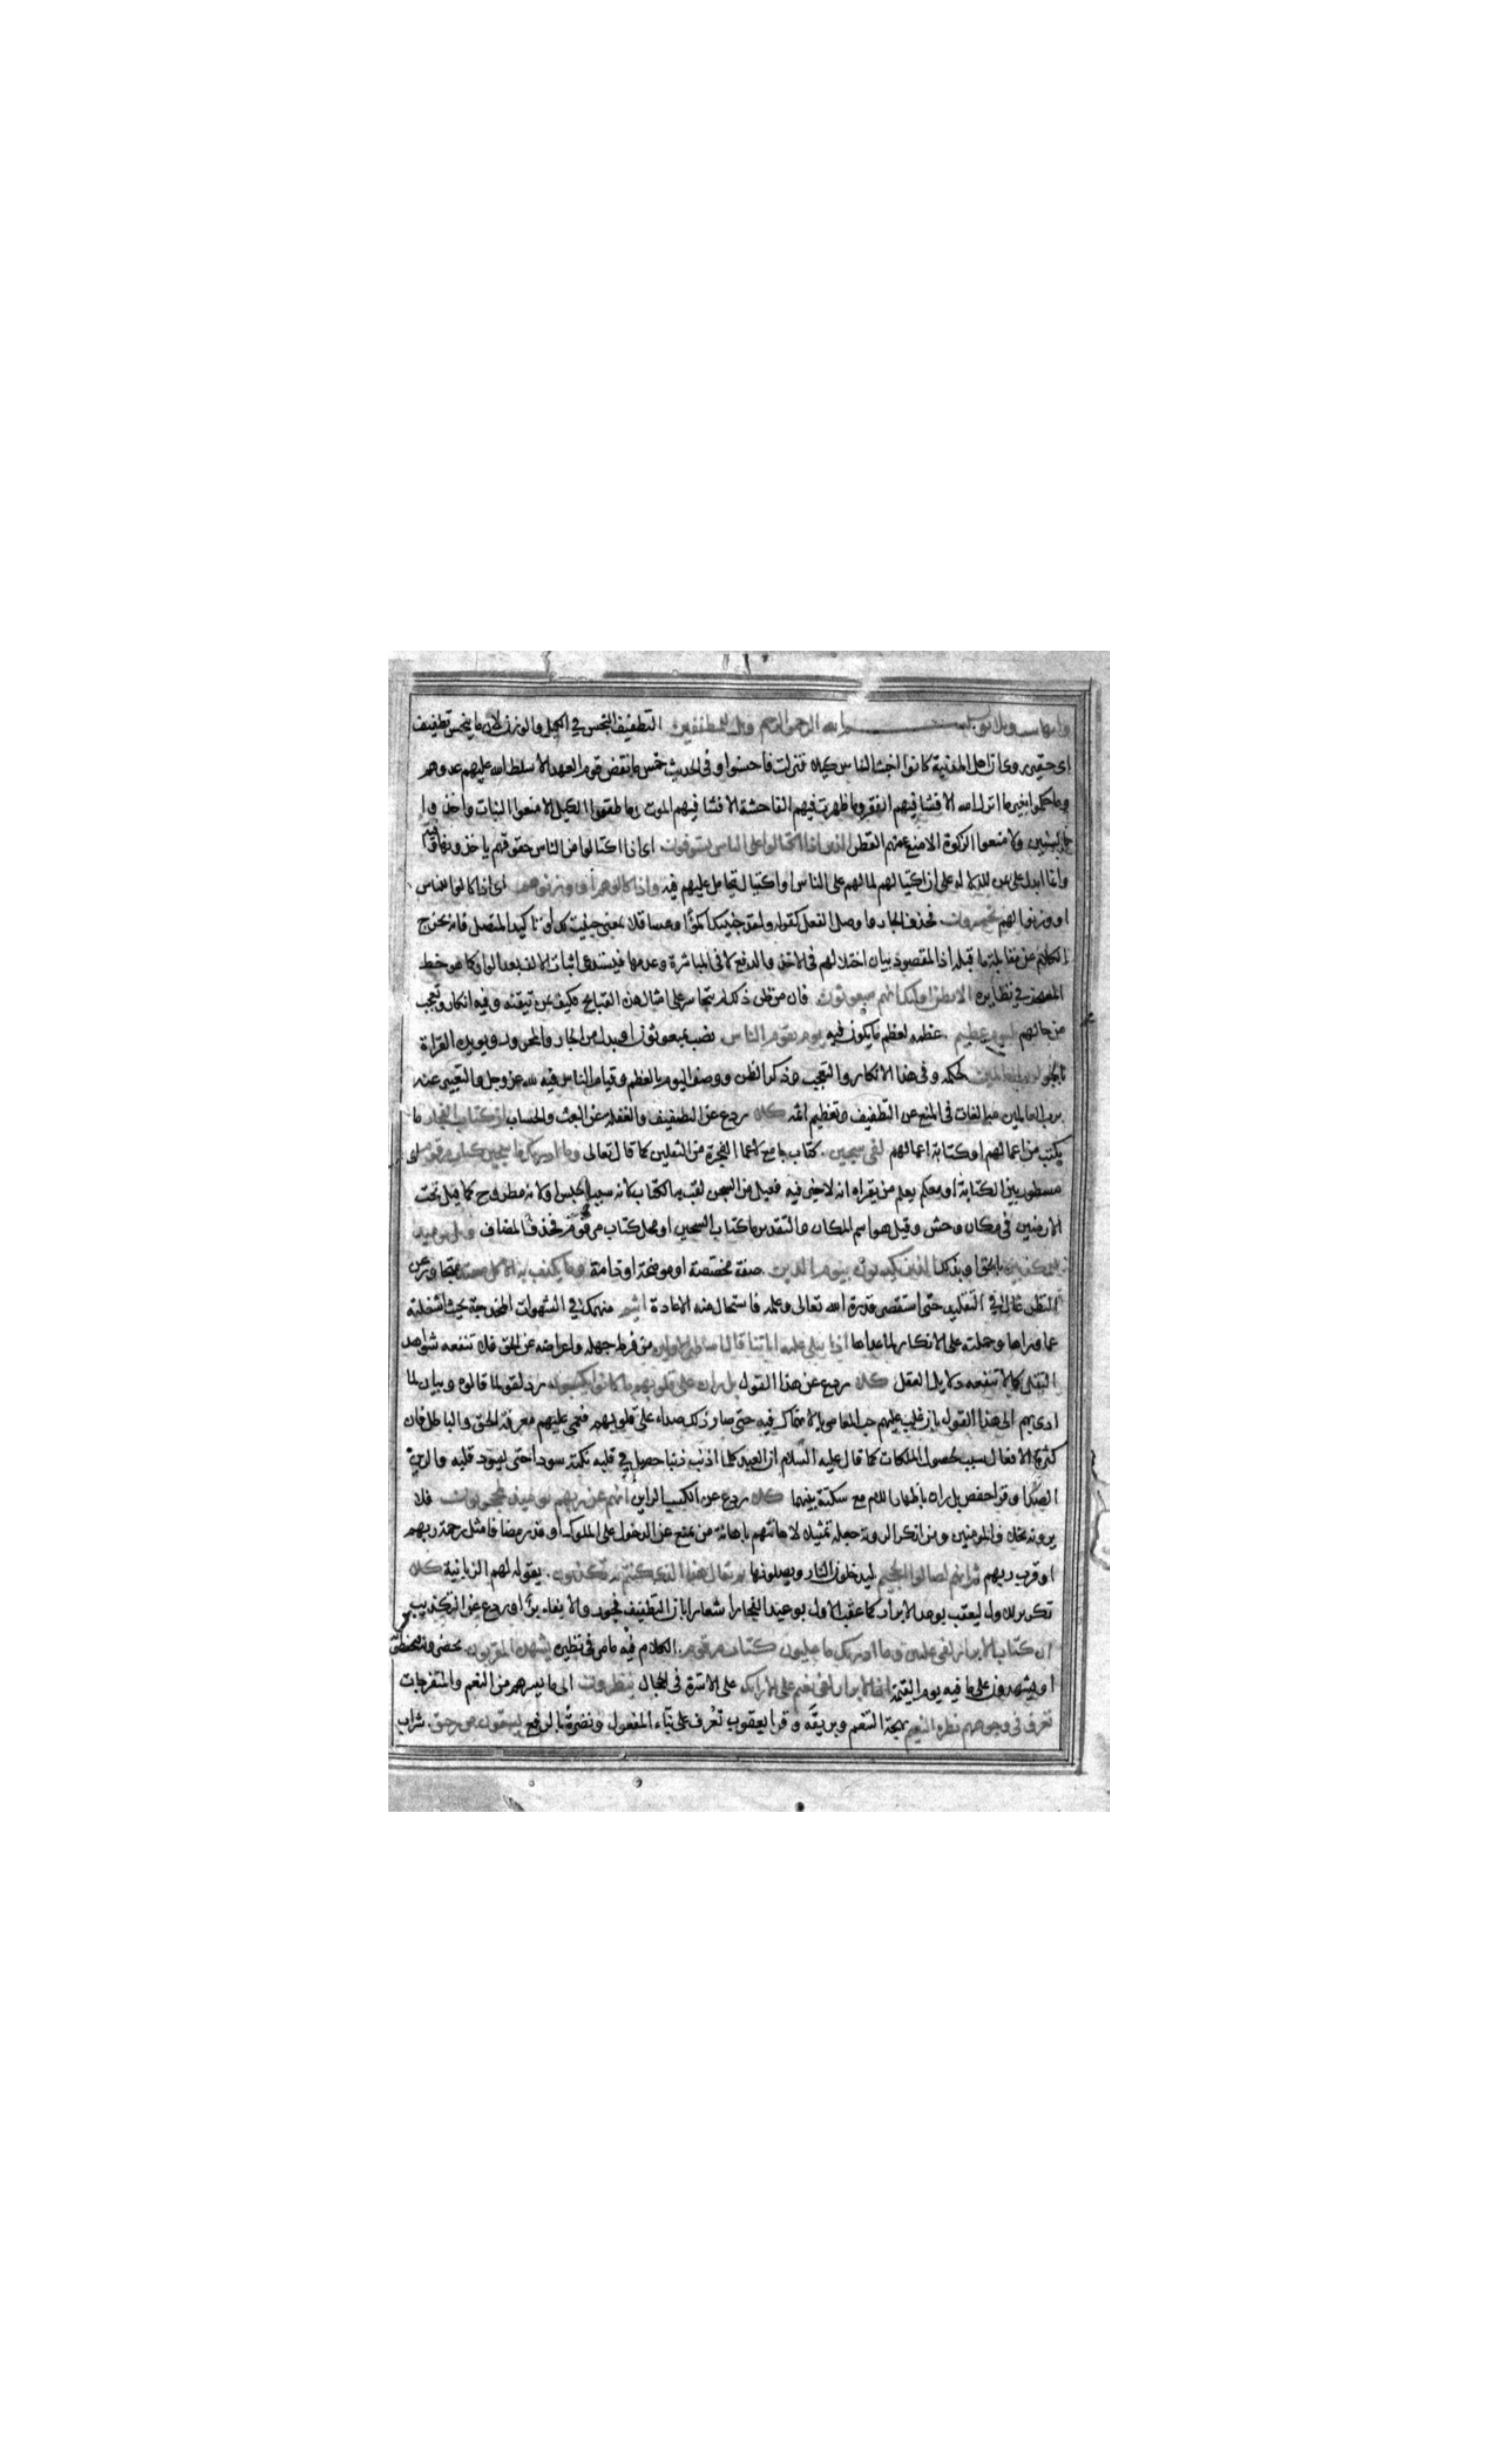 بسم الله الرحمن الرحيم ويل للمطففين التطفيف البخس في الكيل والوزن لان ما يبخس تطفيف
اى حقير روى ان اهل المدينة كانوا اخبث الناس كيلا فنزلت فاحسنوا وفى الحديث خمس ما نقض قوم العهد الا سلط الله عليهم عدوهم
وما حكموا بغير ما انزل الله الا فشا فيهم الفقر وما ظهرت فيهم الفاحشة الا فشا فيهم الموت وما طففوا الكيل الا منعوا النبات واخذوا
بالسنين ولا منعوا الزكوة الا منع عنهم القطر الذين اذا اكتالوا على الناس يستوفون اى اذا اكتالوا من الناس حقوقهم ياخذونها
وانما ابدل على عن للدلالة على ان اكتيالهم لمالهم على الناس او اكتيال تحامل عليهم فيه واذا كالوهم او وزنوهم اى اذا كالوا للناس
او وزنوا لهم يخسرون فحذف الجار واوصل الفعل كقوله ولقد جنيتك اكمؤا وعساقلا بمعنى جنيت لك او تاكيد المتصل فانه يخرج
الكلام عن مقابلة ما قبله اذ المقصود بيان اختلالهم فى الاخذ والدفع لا فى المباشرة وعدمها فيستدعى اثبات الالف بعد الواو كما هو خط
المصحف في نظايره الا يظن اولئك انهم مبعوثون فان من ظن ذلك لم يتجاسر على امثال هذه القبايح فكيف عن تيقنه وفيه انكار وتعجب
من حالهم ليوم عظيم عظمه لعظم ما يكون فيه يوم يقوم الناس نصب بمبعوثون او بدل من الجار والمجرور ويويده القراة
بالجر لرب العالمين لحكمه وفى هذا الانكار والتعجب وذكر الظن ووصف اليوم بالعظم وقيام الناس فيه لله عز وجل والتعبير عنه
برب العالمين مبالغات فى المنع عن التطفيف وتعظيم اثمه كلا ردع عن التطفيف والغفلة عن البعث والحساب ان كتاب الفجار ما
يكتب من اعمالهم او كتابة اعمالهم لفى سجين كتاب جامع لاعمال الفجرة من الثقلين كما قال تعالى وما ادريك ما سجين كتاب مرقوم اى
مسطور بين الكتابة او معلم يعلم من يقراه انه لا خير فيه فعيل من السجن لقب به الكتاب لانه سبب الحبس او لانه مطروح كما قيل تحت
الارضين فى مكان وحش وقيل هو اسم المكان والتقدير ما كتاب السجين او محل كتاب مرقوم فحذف المضاف ويل يوميذ
للمكذبين بالحق او بذلك الذين يكذبون بيوم الدين صفة مخصصة او موضحة او ذامة وما يكذب به الا كل معتد متجاوز عن
النظر غال في التقليد حتى استقصر قدرة الله تعالى وعلمه فاستحال منه الاعادة اثيم منهمك في الشهوات المخدجة بحيث اشغلته
عما وراها وحملته على الانكار لما عداها اذا تتلى عليه اياتنا قال اساطير الاولين من فرط جهله واعراضه عن الحق فلا تنفعه شواهد
النقل كما لا تنفعه دلايل العقل كلا ردع عن هذا القول بل ران على قلوبهم ما كانوا يكسبون رد لقولهم لما قالوه وبيان لما
ادى بهم الى هذا القول بان غلب عليهم حب المعاصى بالانهماك فيه حتى صار ذلك صداء على قلوبهم فعمى عليهم معرفة الحق والباطل فان
كثرة الافعال سبب لحصول الملكات كما قال عليه السلام ان العبد كلما اذنب ذنبا حصل في قلبه نكتة سودا حتى يسود قلبه والرين
الصدا وقرا حفص بل ران باظهار اللام مع سكتة بينهما كلا ردع عن الكسب الراين انهم عن ربهم يوميذ لمحجوبون فلا
يرونه بخلاف المومنين ومن انكر الروية جعله تمثيلا لاهانتهم باهانة من يمنع عن الدخول على الملوك او قدر مضافا مثل رحمة ربهم
او قرب ربهم ثم انهم لصالوا الجحيم ليدخلون النار ويصلونها ثم يقال هذا الذى كنتم به تكذبون يقوله لهم الزبانية كلا
تكرير للاول ليعقب بوعد الابرار كما عقب الاول بوعيد الفجار اشعارا بان التطفيف فجور والايفاء بر او ردع عن التكذيب
ان كتاب الابرار لفى عليين وما ادريك ما عليون كتاب مرقوم الكلام فيه ما مر فى نظيره يشهده المقربون يحضرونه فيحفظونه
او يشهدون على ما فيه يوم القيمة ان الابرار لفى نعيم على الارايك على الاسرة فى الحجال ينظرون الى ما يسرهم من النعم والمتفرجات
تعرف فى وجوههم نضرة النعيم بهجة التنعم وبريقه وقرا يعقوب تعرف على بناء المفعول ونضرة بالرفع يسقون من رحيق شراب